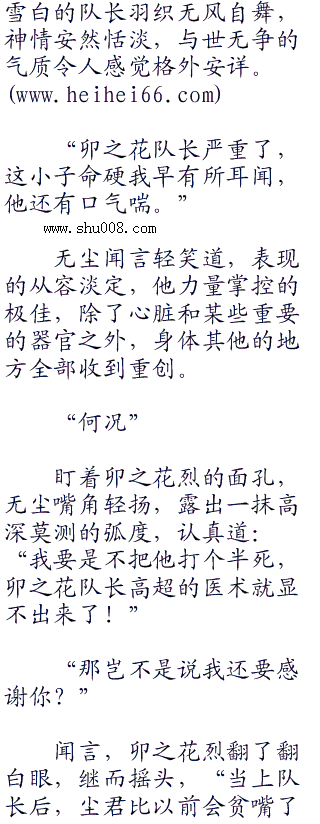 雪白的队长羽织无风自舞，
神情安然恬淡，与世无争的
气质令人感觉格外安详。
(www.heihei66.com)
“卯之花队长严重了，
这小子命硬我早有所耳闻，
他还有口气喘。”
www.shu008.com
无尘闻言轻笑道，表现
的从容淡定，他力量掌控的
极佳，除了心脏和某些重要
的器官之外，身体其他的地
方全部收到重创。
“何况”
盯着卯之花烈的面孔，
无尘嘴角轻扬，露出一抹高
深莫测的弧度，认真道：
“我要是不把他打个半死，
卯之花队长高超的医术就显
不出来了！”
“那岂不是说我还要感
谢你？”
闻言，卯之花烈翻了翻
白眼，继而摇头，“当上队
长后，尘君比以前会贫嘴了